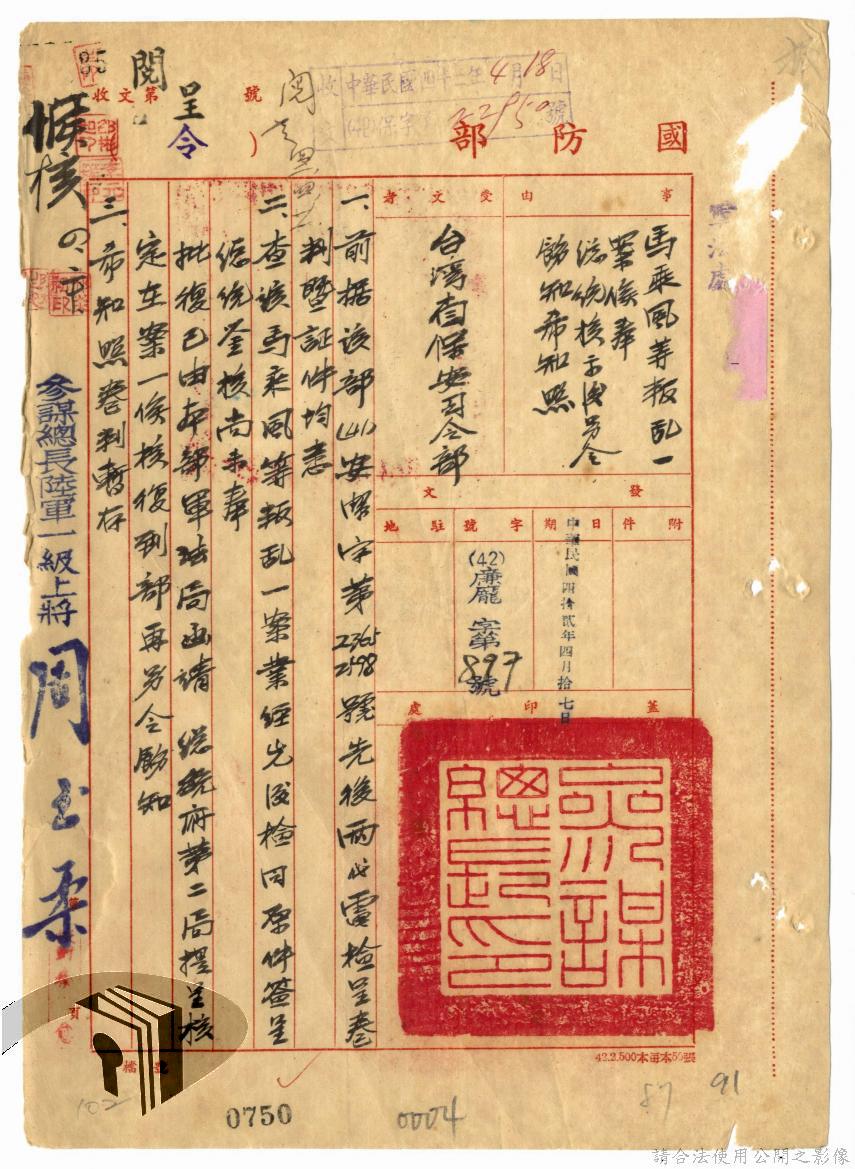 國防部
呈
令
收文第 號
閱
收 中華民國四十二年4月18日
文 (42)保字 22950號
軍法處
事由
馬乘風等叛乱一
案俟奉
總統核示後另令
飭知希知照
受文者
台湾省保安司令部
發文
附件
日期
中華民國四拾貳年四月拾七日
字號
(42)廉龐字第897號
駐地
蓋印處
參謀總長印
一、前据該部(41)安潔字第2365 2598號先後兩代電檢呈卷
判暨証件均悉
二、查該馬乘風等叛乱一案業經先後檢同原件簽呈
總統鉴核尚未奉
批復已由本部軍法局函請 總統府第二局提呈核
定在案一俟核復到部再另令飭知
三、希知照卷判暫存
參謀總長陸軍一級上將
周至柔
候核
檔號
42.2.500本每本50張
102
0750
0004
87
91
請合法使用公開之影像